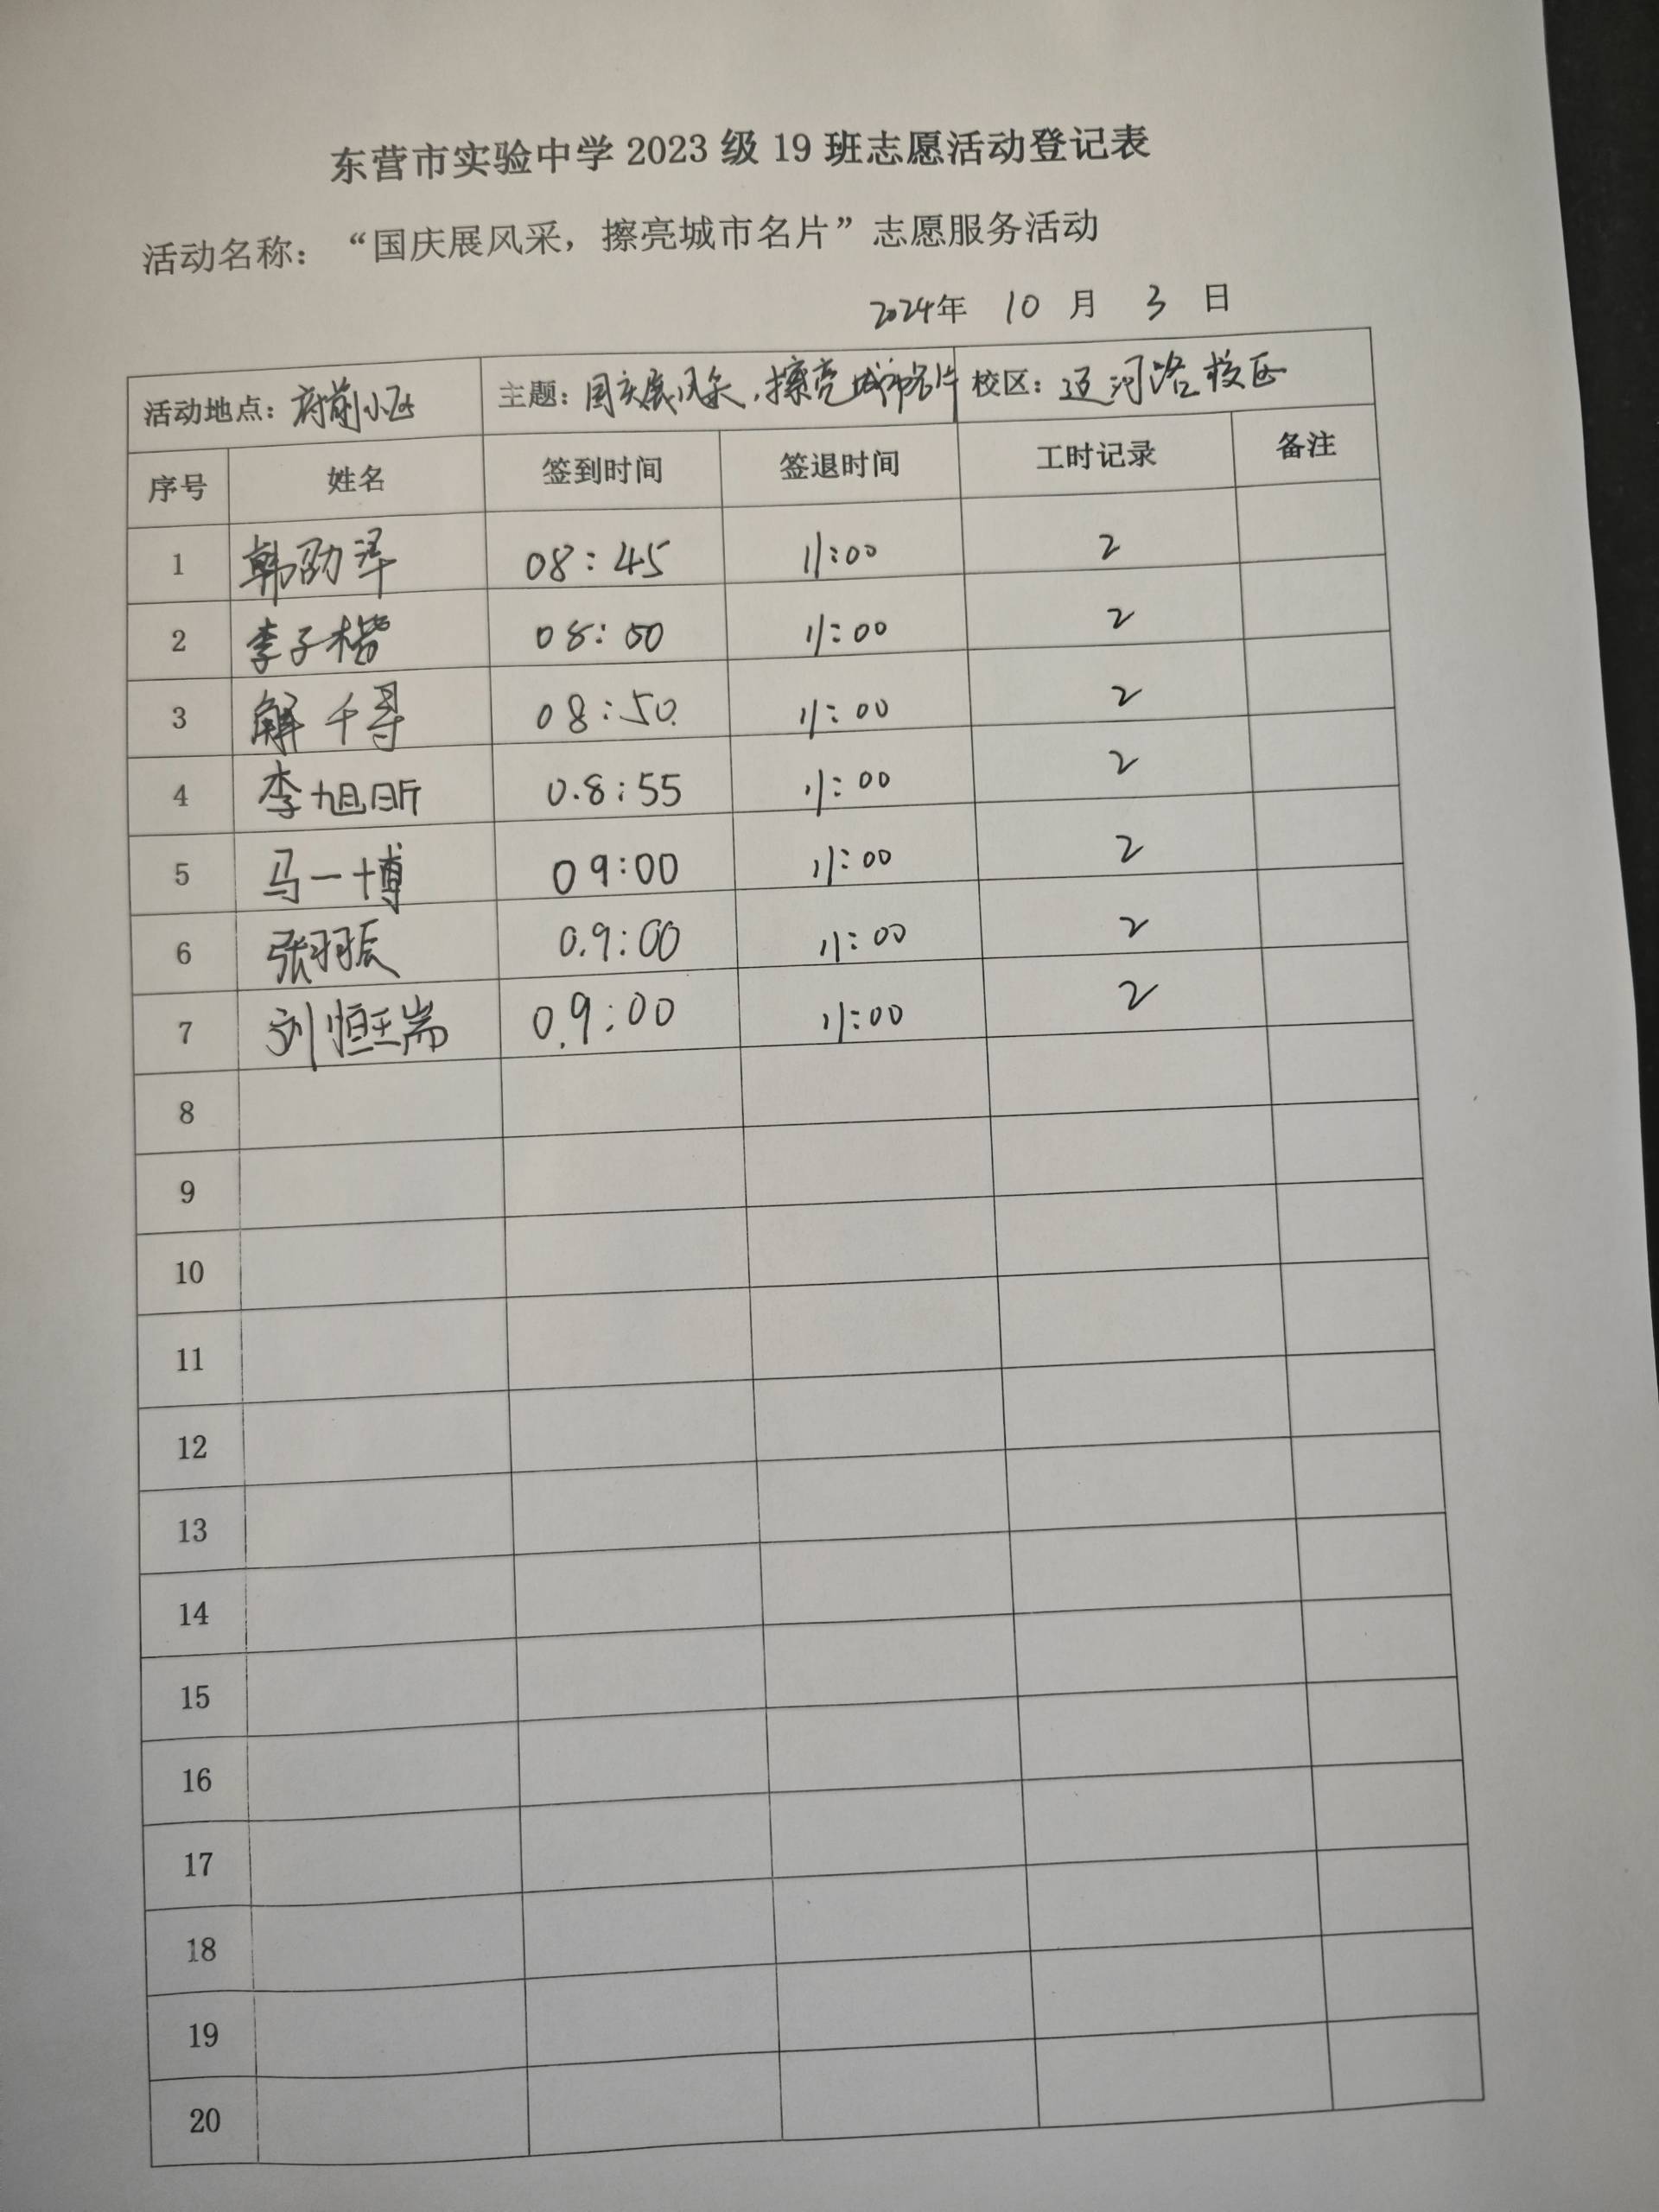 东营市实验中学 2023 级 19 班志愿活动登记表
活动名称：“国庆展风采，擦亮城市名片”志愿服务活动
2024年 10 月 3 日
活动地点：府前小区 主题：国庆展风采，擦亮城市名片 校区：辽河路校区
序号 姓名 签到时间 签退时间 工时记录 备注
1 韩劭泽 08：45 11:00 2
2 李子楷 08：50 11:00 2
3 解千寻 08:50 11:00 2
4 李旭昕 0.8:55 11:00 2
5 马一博 09:00 11:00 2
6 张羽辰 0.9:00 11:00 2
7 刘恒瑞 0.9:00 11:00 2
8
9
10
11
12
13
14
15
16
17
18
19
20